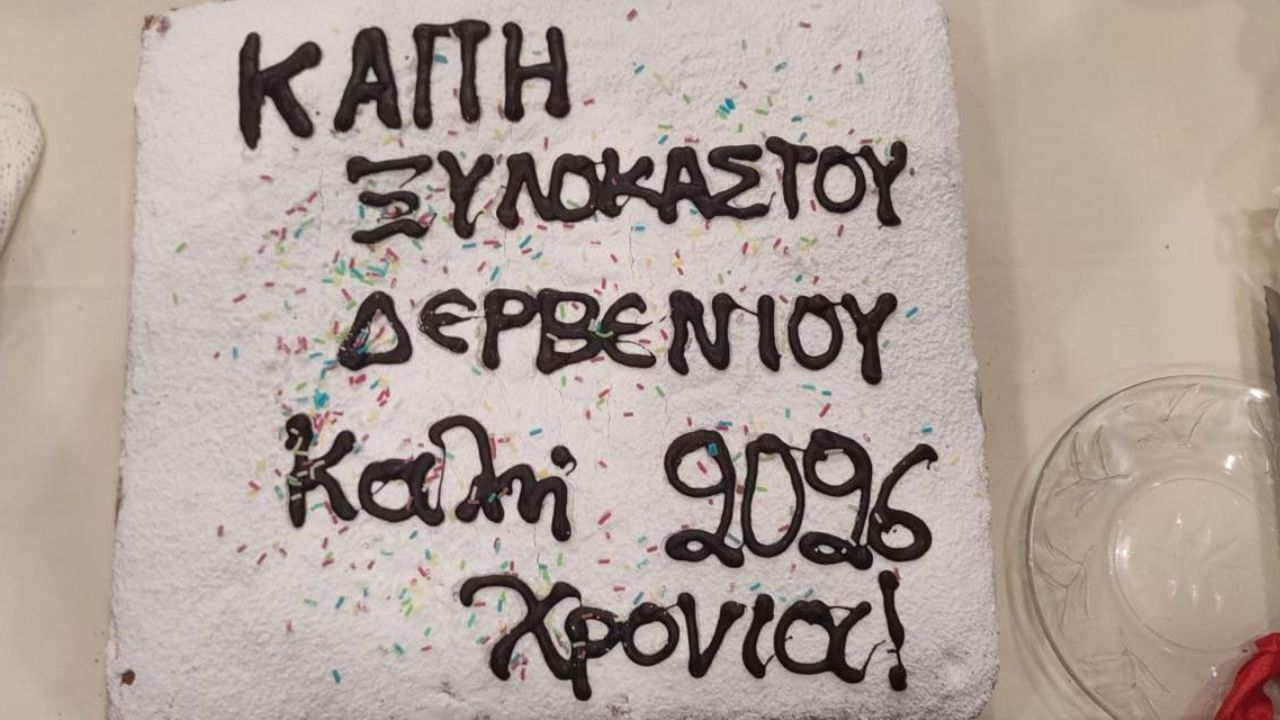 ΚΑΠΗ
ΞΥΛΟΚΑΣΤΟΥ
ΔΕΡΒΕΝΙΟΥ
Καλή 2026
Χρονια!